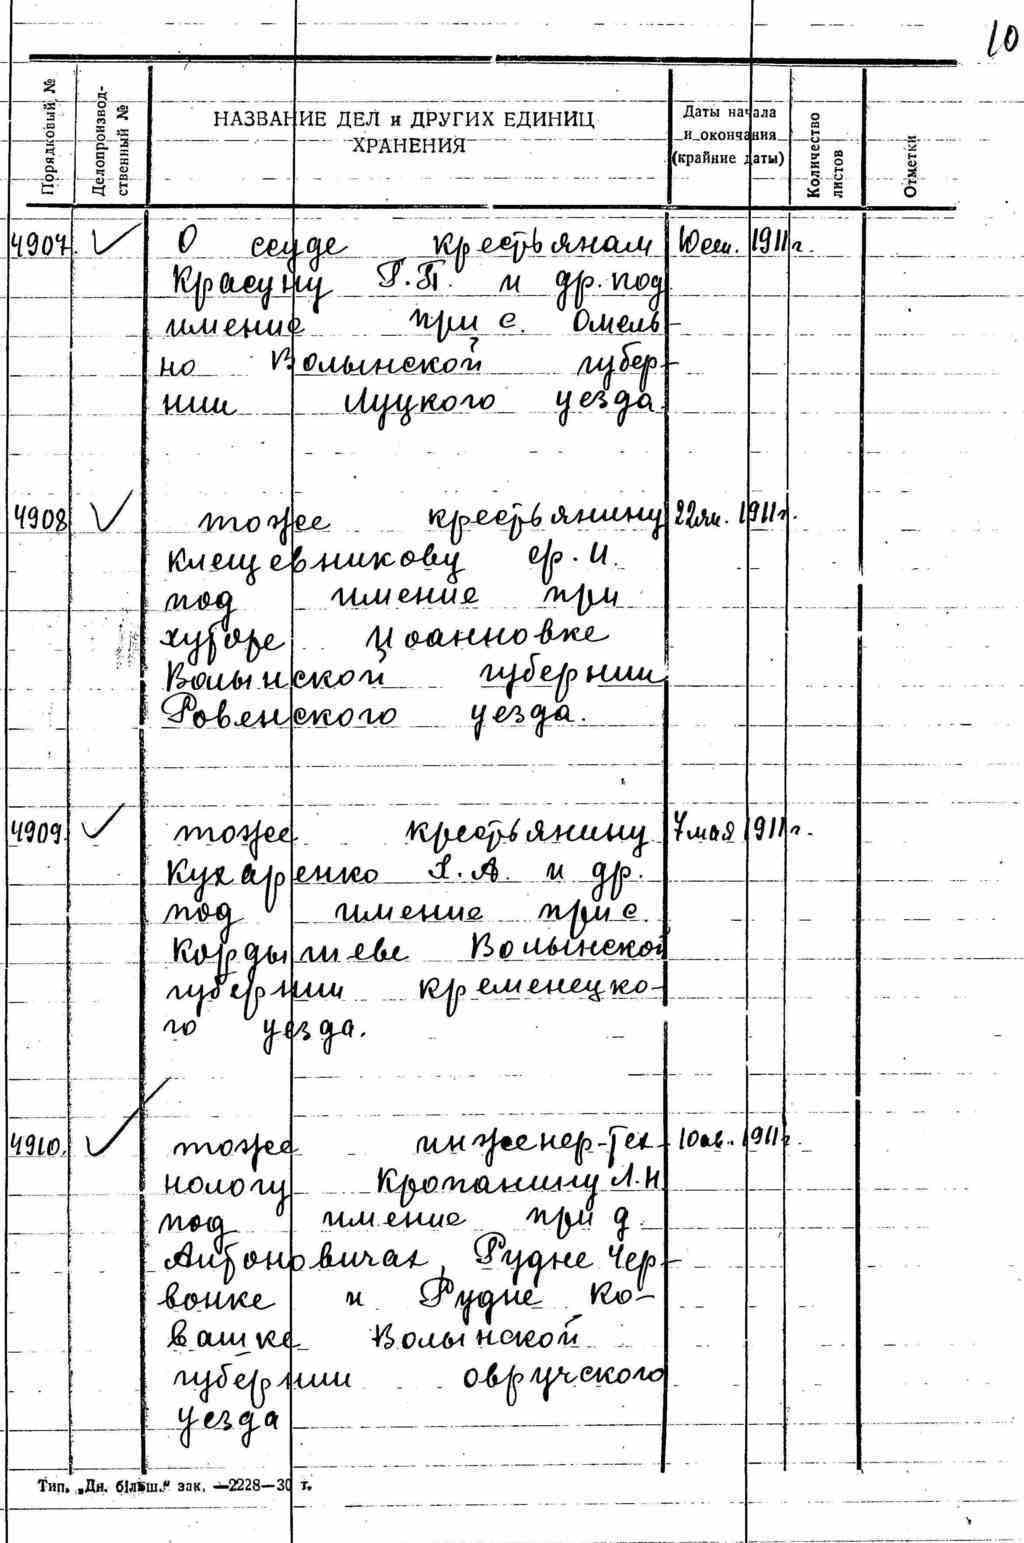 10
Порядковый №
Делопроизвод-
ственный №
НАЗВАНИЕ ДЕЛ и ДРУГИХ ЕДИНИЦ
ХРАНЕНИЯ
Даты начала
и окончания
(крайние даты)
Количество
листов
Отметки
4907. О ссуде крестьянам 1911 г.
Красуну Г.П. и др. под
имение при с. Омель-
но Волынской губер-
нии Луцкого уезда.
4908 тоже крестьянину 22 ян. 1911 г.
Клещевникову Ф.И.
под имение при
хуторе Иоанновке
Волынской губернии
Ровенского уезда.
4909. тоже крестьянину 7 мая 1911 г.
Кухаренко Х.А. и др.
под имение при с.
Кордышеве Волынской
губернии кременецко-
го уезда.
4910. тоже инженер-тех- 10 ав. 1911 г.
нологу Кропанину Л.Н.
под имение при д.
Антоновичах, Рудне Чер-
вонке и Рудне Ко-
вашке Волынской
губернии овручского
уезда
Тип. „Дн. більш." зак. —2228—30 т.